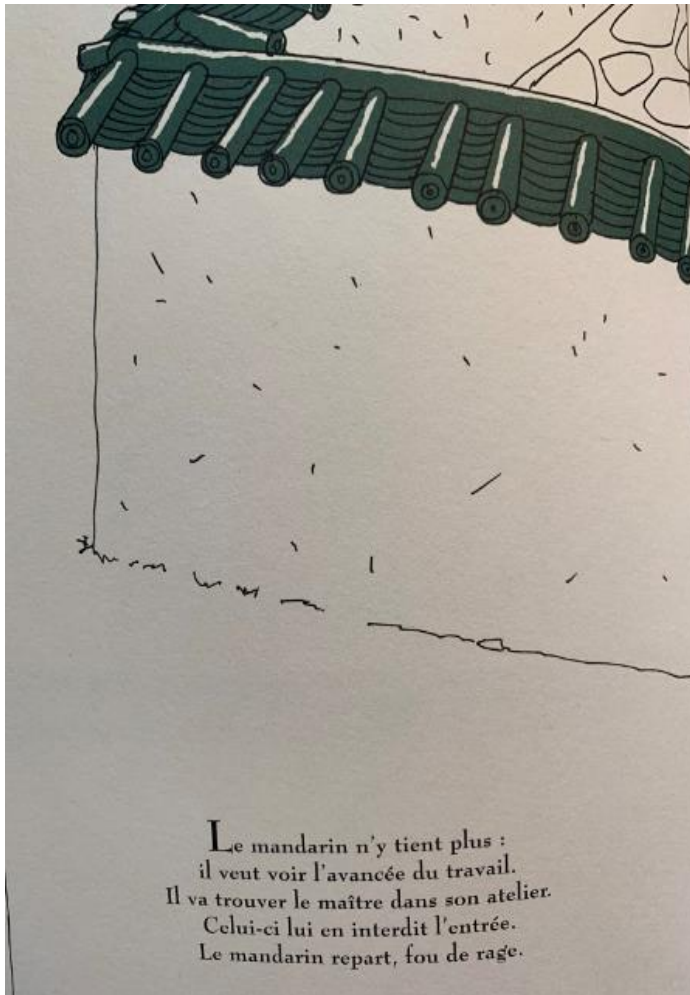 Le mandarin n'y tient plus :
il veut voir l'avancée du travail.
Il va trouver le maître dans son atelier.
Celui-ci lui en interdit l'entrée.
Le mandarin repart, fou de rage.